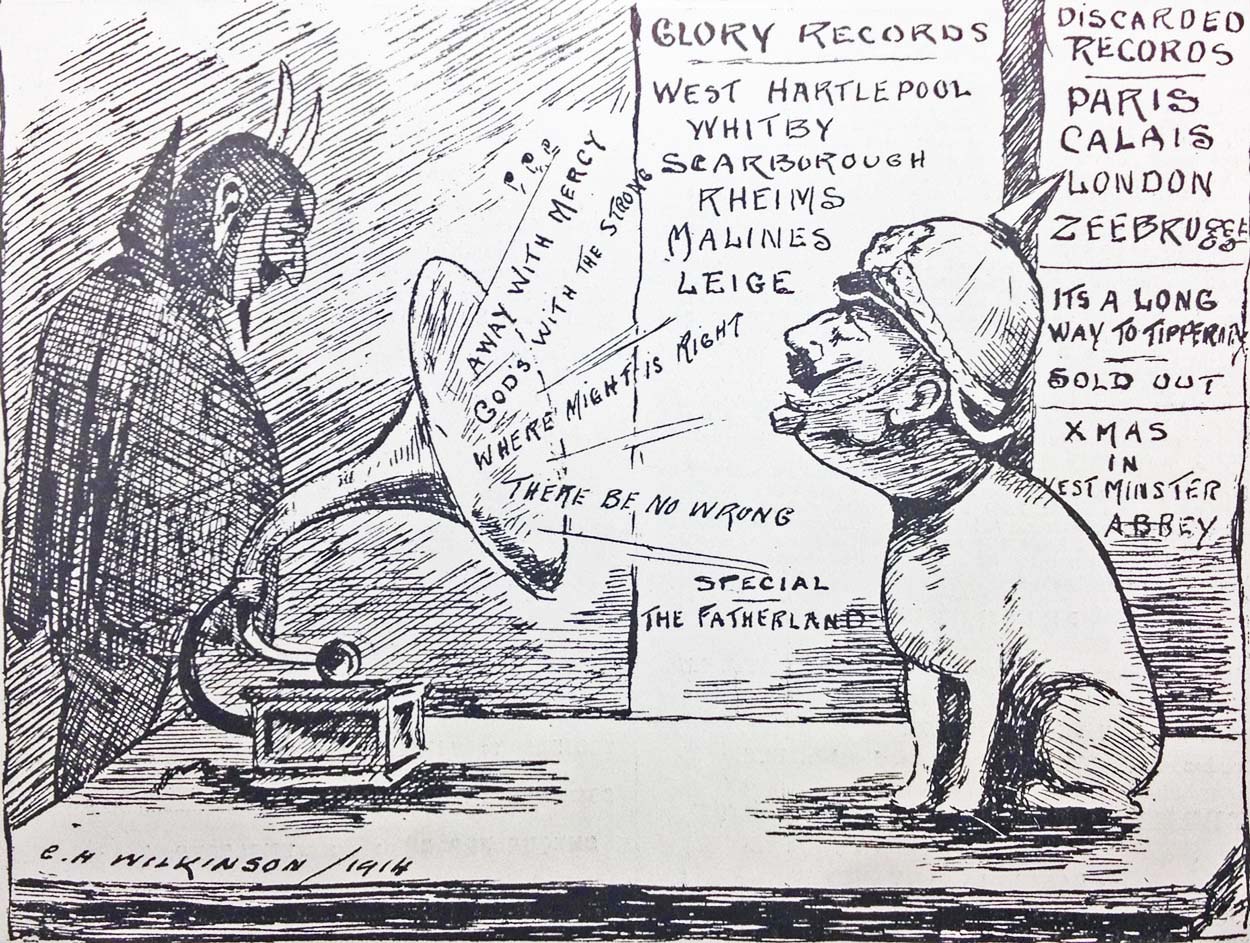 GLORY RECORDS
WEST HARTLEPOOL
WHITBY
SCARBOROUGH
RHEIMS
MALINES
LEIGE
SPECIAL
THE FATHERLAND
DISCARDED
RECORDS
PARIS
CALAIS
LONDON
ZEEBRUGGE
ITS A LONG
WAY TO TIPPERARY
SOLD OUT
XMAS
IN
WESTMINSTER
ABBEY
P.P.P
AWAY WITH MERCY
GOD'S WITH THE STRONG
WHERE MIGHT IS RIGHT
THERE BE NO WRONG
C.H WILKINSON /1914